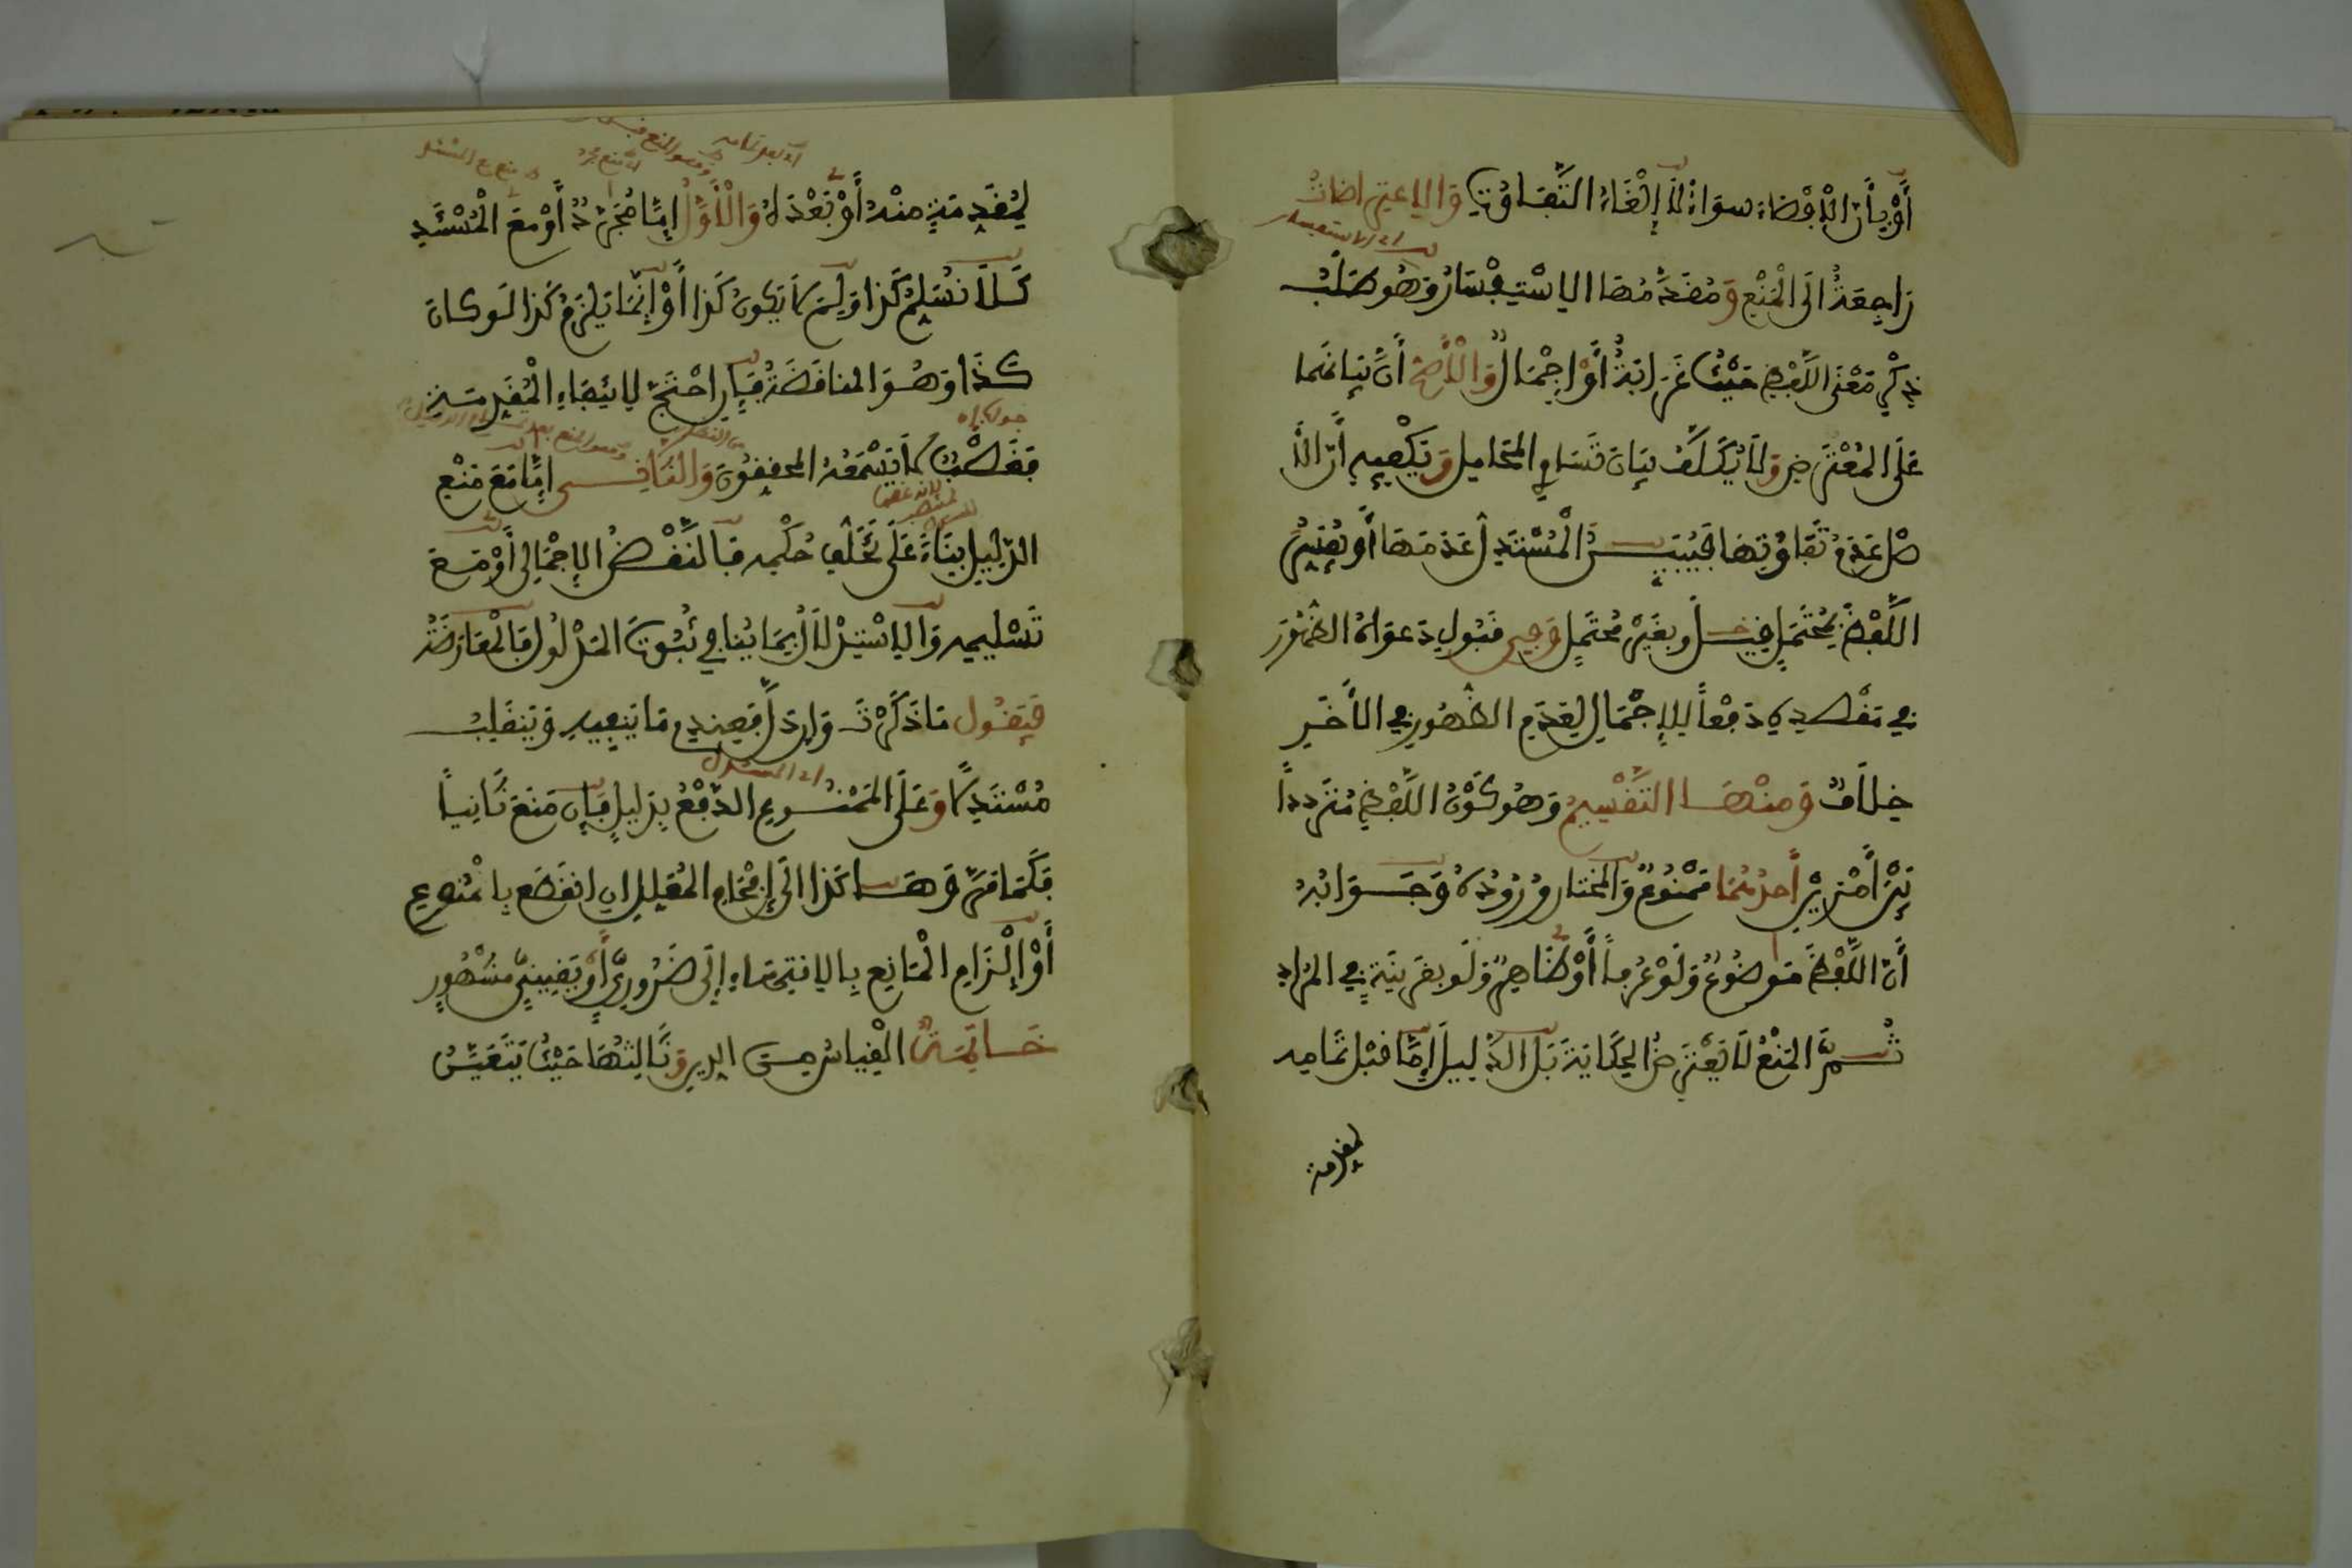 أَوْ بِأَنَّ الْإِفْضَاءَ سَوَاءٌ لَا إِلْغَاءُ التَّفَاوُتِ وَالِاعْتِرَاضَاتُ
أي الاستفسار
رَاجِعَةٌ إِلَى الْمَنْعِ وَمُقَدَّمُهَا الِاسْتِفْسَارُ وَهُوَ طَلَبُ
ذِكْرِ مَعْنَى اللَّفْظِ حَيْثُ غَرَابَةٌ أَوْ إِجْمَالٌ وَالْأَصَحُّ أَنَّ بَيَانَهُمَا
عَلَى الْمُعْتَرِضِ وَلَا يُكَلَّفُ بَيَانَ تَسَاوِي الْمَحَامِلِ وَيَكْفِيهِ أَنَّ الْأَ
صْلَ عَدَمُ تَفَاوُتِهَا فَيُبَيِّنُ الْمُسْتَدِلُّ عَدَمَهَا أَوْ يُفَسِّرُ
اللَّفْظَ بِمُحْتَمَلٍ قِيلَ وَبِغَيْرِ مُحْتَمَلٍ وَفِي قَبُولِ دَعْوَاهُ الظُّهُورَ
فِي مَقْصِدِهِ دَفْعاً لِلْإِجْمَالِ لِعَدَمِ الظُّهُورِ فِي الْأَخِيرِ
خِلَافٌ وَمِنْهَا التَّقْسِيمُ وَهُوَ كَوْنُ اللَّفْظِ مُتَرَدِّداً
بَيْنَ أَمْرَيْنِ أَحَدُهُمَا مَمْنُوعٌ وَالْمُخْتَارُ وُرُودُهُ وَجَوَابُهُ
أَنَّ اللَّفْظَ مَوْضُوعٌ وَلَوْ عُرْفاً أَوْ ظَاهِرٌ وَلَوْ بِقَرِينَةٍ فِي الْمُرَادِ
ثُمَّ الْمَنْعُ لَا يَعْتَرِضُ الْحِكَايَةَ بَلِ الدَّلِيلَ إِمَّا قَبْلَ تَمَامِهِ
لمقدمة
لِمُقَدِّمَةٍ مِنْهُ أَوْ بَعْدَهُ وَالْأَوَّلُ إِمَّا مُجَرَّدٌ أَوْ مَعَ الْمُسْتَنَدِ
كَلَا نُسَلِّمُ كَذَا وَلِمَ لَا يَكُونُ كَذَا أَوْ إِنَّمَا يَلْزَمُ كَذَا لَوْ كَانَ
كَذَا وَهُوَ الْمُنَاقَضَةُ فَإِنِ احْتَجَّ لِانْتِفَاءِ الْمُقَدِّمَةِ
فَغَصْبٌ لَا يَسْمَعُهُ الْمُحَقِّقُونَ وَالثَّانِي إِمَّا مَعَ مَنْعِ
الدَّلِيلِ بِنَاءً عَلَى تَخَلُّفِ حُكْمِهِ فَالنَّقْضُ الْإِجْمَالِيُّ أَوْ مَعَ
تَسْلِيمِهِ وَالِاسْتِدْلَالُ بِمَا يُنَافِي ثُبُوتَ الْمَدْلُولِ فَالْمُعَارَضَةُ
فَيَقُولُ مَا ذَكَرْتَ وَإِنْ دَلَّ فَعِنْدِي مَا يَنْفِيهِ وَيَنْقَلِبُ
أي المستدل
مُسْتَدِلًّا وَعَلَى الْمَمْنُوعِ الدَّفْعُ بِدَلِيلٍ فَإِنْ مَنَعَ ثَانِياً
فَكَمَا مَرَّ وَهَاكَذَا إِلَى إِفْحَامِ الْمُعَلِّلِ إِنِ انْقَطَعَ بِالْمُنُوعِ
أَوْ إِلْزَامِ الْمَانِعِ بِالِانْتِهَاءِ إِلَى ضَرُورِيٍّ أَوْ يَقِينِيٍّ مَشْهُورٍ
خَاتِمَةٌ الْقِيَاسُ مِنَ الدِّينِ وَثَالِثُهَا حَيْثُ يَتَعَيَّنُ